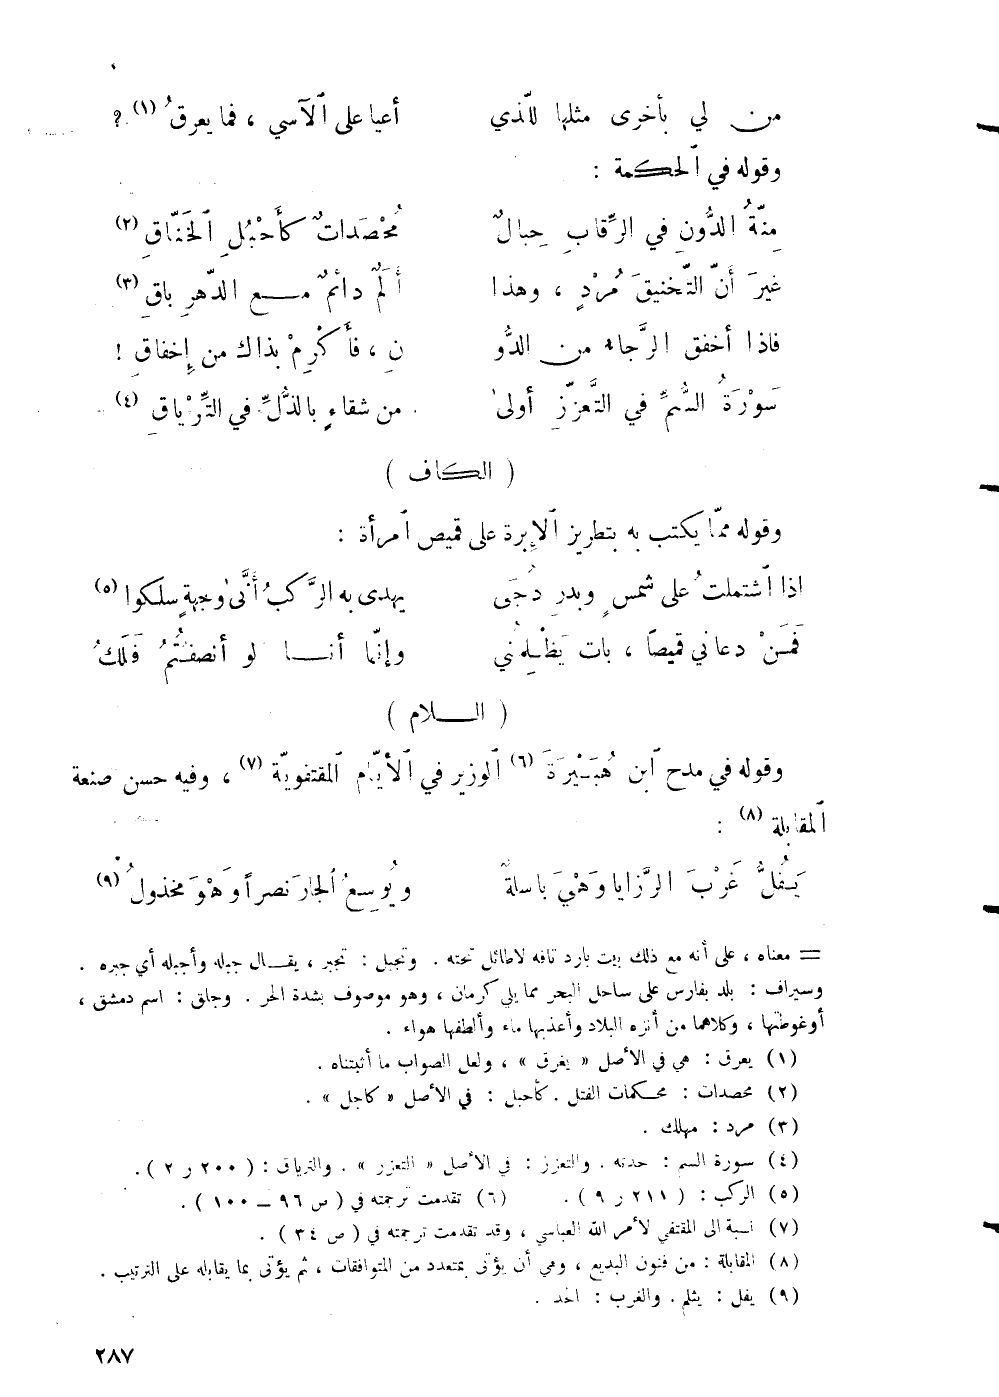 من لي بأخرى مثلها للّذي أعيا على ٱلآسي ، فما يعرقُ (١) ؟
وقوله في ٱلحكمة :
مِنّةُ الدُّونِ في الرِّقابِ حِبالٌ مُحْصَدَاتٌ كَأَحْبُلِ ٱلخَنّاقِ (٢)
غيرَ أَنّ التّخنيقَ مُرْدٍ ، وهذا أَلَمٌ دائمٌ مع الدّهرِ باقِ (٣)
فاذا أخفق الرَّجاء من الدُّو نِ ، فأَكْرِمْ بذاك من إِخفاقِ !
سَوْرَةُ السُّمِّ في التَّعزّزِ أولىٰ من شقاءٍ بالذُّلِّ في التِّرْياقِ (٤)
( الكاف )
وقوله ممّا يكتب به بتطريز ٱلإبرة على قميص ٱمرأة :
اذا ٱشتملتُ على شمسٍ وبدرِ دُجَى يهدى به الرَّكبُ أَنَّىٰ وجهةٍ سلكوا (٥)
فَمَنْ دعاني قميصًا ، بات يَظْلِمُني وإنّما أنا لو أنصفتُمُ فَلَكُ
( اللام )
وقوله في مدح ٱبن هُبَيْرَةَ (٦) ٱلوزير في ٱلأيّام ٱلمقتفويّة (٧) ، وفيه حسن صنعة
ٱلمقابلة (٨) :
يَفُلُّ غَرْبَ الرَّزايا وَهْيَ باسلةٌ ويُوسِعُ ٱلجارَ نصراً وَهْوَ مخذولُ (٩)
= معناه ، على أنه مع ذلك بيت بارد تافه لاطائل تحته . وتجبل : تجبر ، يقال جبله وأجبله أي جبره .
وسيراف : بلد بفارس على ساحل البحر مما يلي كرمان ، وهو موصوف بشدة الحر . وجلق : اسم دمشق ،
أوغوطتها ، وكلاهما من أنزه البلاد وأعذبها ماء وألطفها هواء .
(١) يعرق : هي في الأصل « يغرق » ، ولعل الصواب ما أثبتناه .
(٢) محصدات : محكمات الفتل . كأحبل : في الأصل « كاجل » .
(٣) مرد : مهلك .
(٤) سورة السم : حدته . والتعزز : في الأصل « التعزر » . والترياق : ( ٢٠٠ ر ٢ ) .
(٥) الركب : ( ٢١١ ر ٩ ) . (٦) تقدمت ترجمته في ( ص ٩٦ – ١٠٠ ) .
(٧) نسبة الى المقتفي لأمر الله العباسي ، وقد تقدمت ترجمته في ( ص ٣٤ ) .
(٨) المقابلة : من فنون البديع ، وهي أن يؤتى بمتعدد من المتوافقات ، ثم يؤتى بما يقابله على الترتيب .
(٩) يفل : يثلم . والغرب : الحد .
٢٨٧